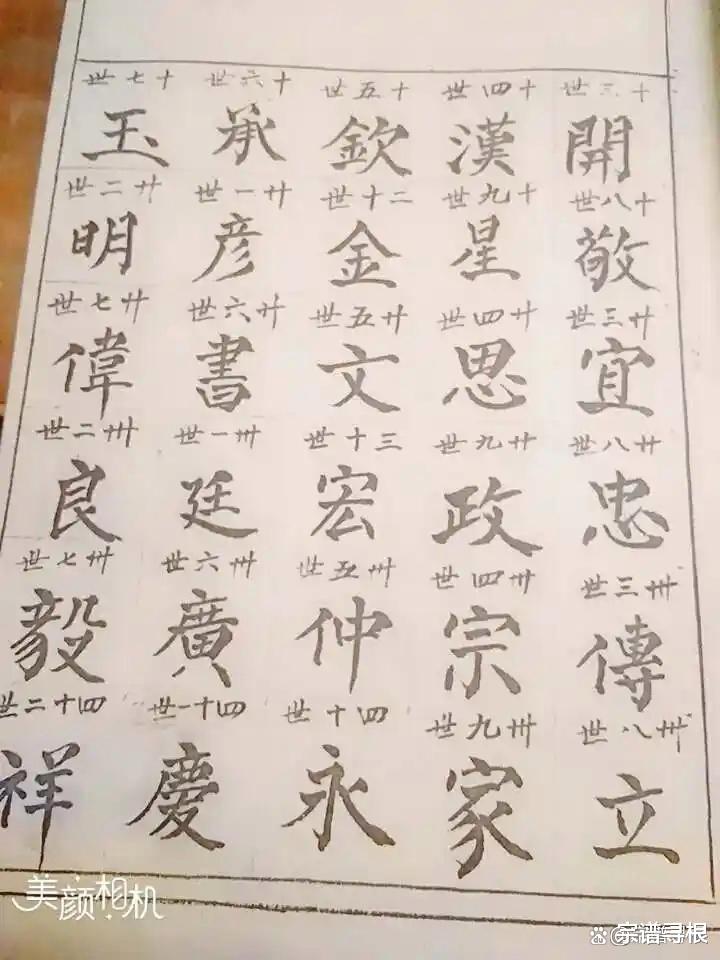 十三世 十四世 十五世 十六世 十七世
開 漢 欽 承 玉
十八世 十九世 二十世 廿一世 廿二世
敬 星 金 彦 明
廿三世 廿四世 廿五世 廿六世 廿七世
宜 思 文 書 偉
廿八世 廿九世 三十世 卅一世 卅二世
忠 政 宏 廷 良
卅三世 卅四世 卅五世 卅六世 卅七世
傳 宗 仲 廣 毅
卅八世 卅九世 四十世 四十一世 四十二世
立 家 永 慶 祥
美颜相机
宗谱寻根